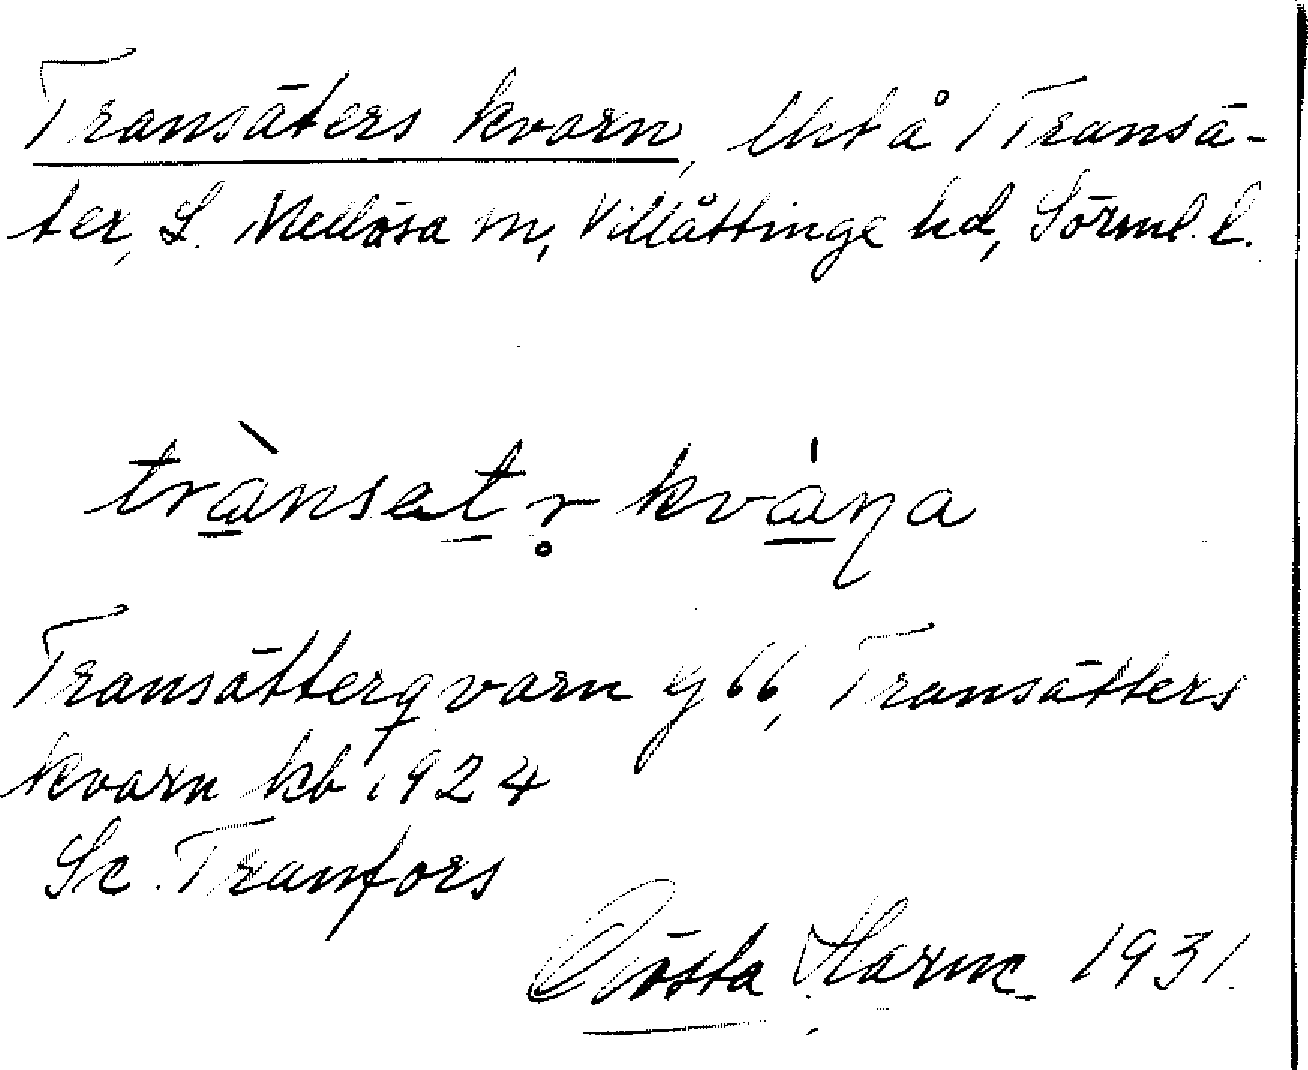 Transäters kvarn, Ust å 1 Transä-
ter, L. Mellösa sn, Villåttinge hd, Sörml. l.
trànsatr̥ kvána
Transätterqvarn g 66, Transätters
kvarn kb 1924
Se Tranfors
Gösta Harne 1931.